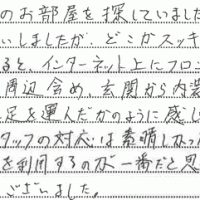 のお部屋を探していました
いしましたが、どこかスッキ
ると、インターネット上にフロン
周辺含め、玄関から内装
足を運んだかのように感じ
タッフの対応は素晴しかった
を利用するのが一番だと思
ございました。